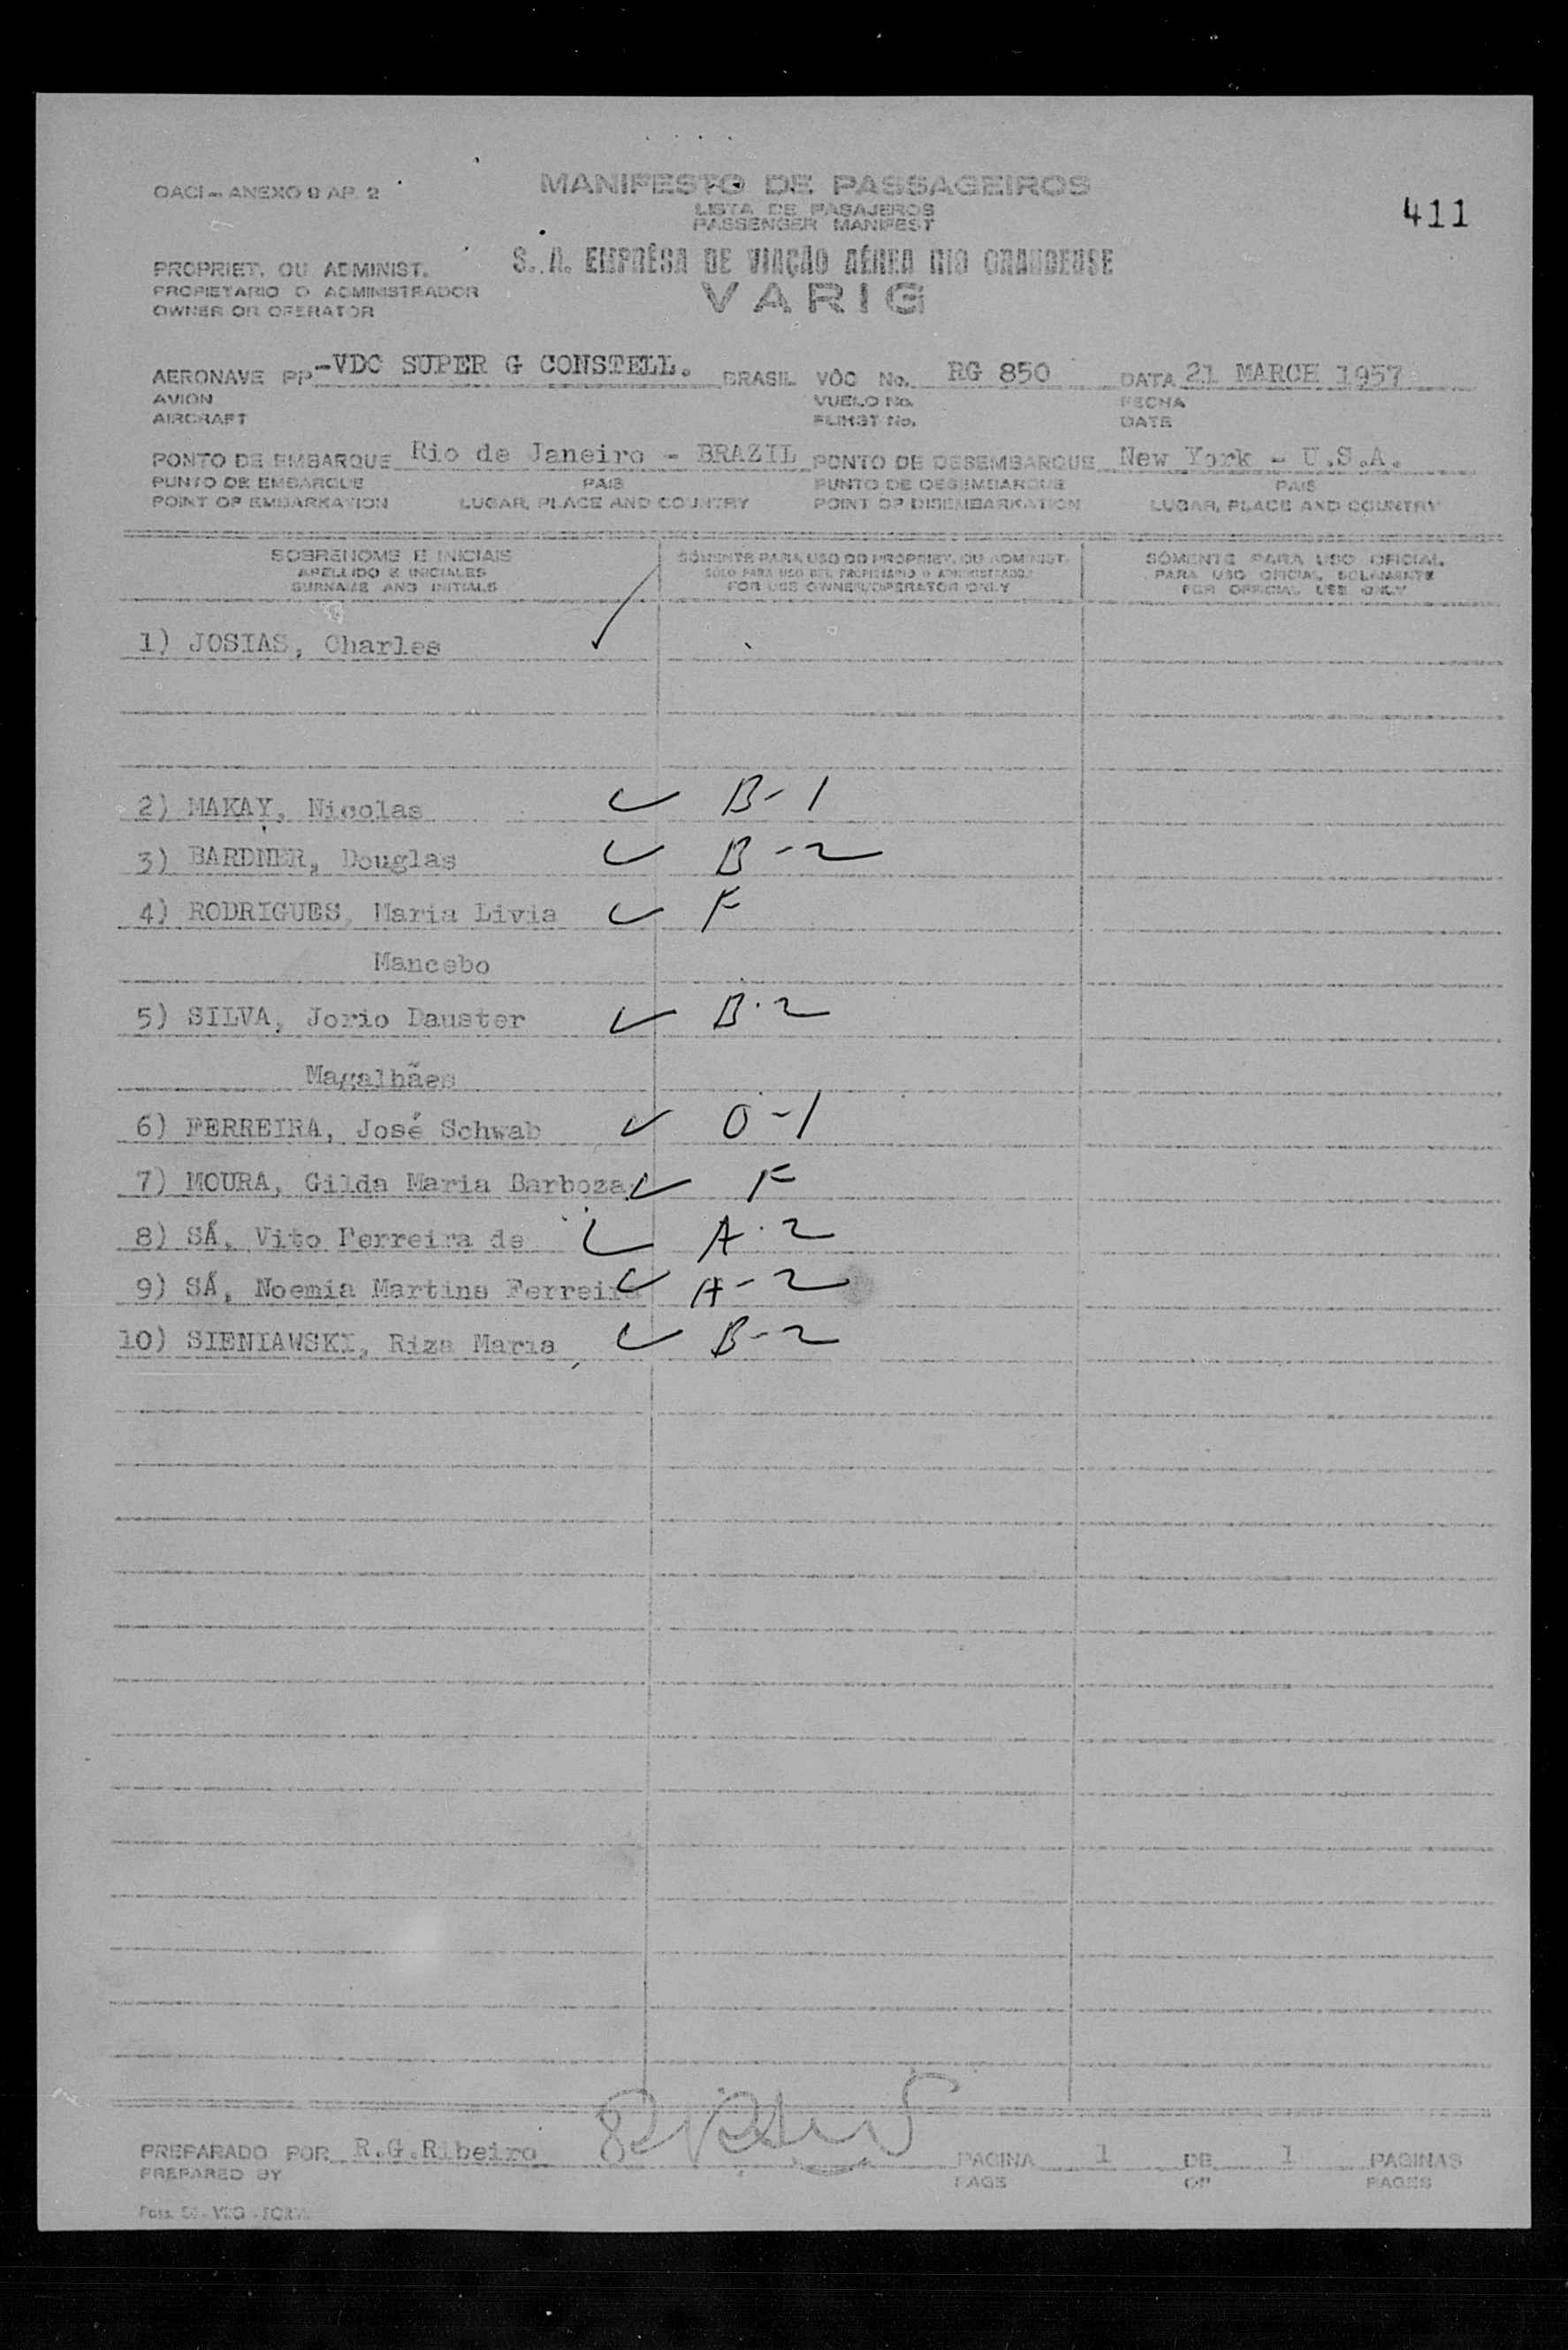 OACI - ANEXO 9 AP. 2
MANIFESTO DE PASSAGEIROS
LISTA DE PASAJEROS
PASSENGER MANIFEST
411
S. A. EMPRÊSA DE VIAÇÃO AÉREA RIO GRANDENSE
VARIG
PROPRIET. OU ADMINIST.
PROPIETARIO O ADMINISTRADOR
OWNER OR OPERATOR
AERONAVE PP -VDC SUPER G CONSTELL. BRASIL VÔO No. RG 850 DATA 21 MARCH 1957
AVION VUELO No. FECHA
AIRCRAFT FLIHGT No. DATE
PONTO DE EMBARQUE Rio de Janeiro - BRAZIL PONTO DE DESEMBARQUE New York - U.S.A.
PUNTO DE EMBARQUE PAIS PUNTO DE DESEMBARQUE PAIS
POINT OF EMBARKATION LUGAR, PLACE AND COUNTRY POINT OF DISEMBARKATION LUGAR, PLACE AND COUNTRY
SOBRENOME E INICIAIS SÓMENTE PARA USO DO PROPRIET. OU ADMINIST. SÓMENTE PARA USO OFICIAL
APELLIDO E INICIALES SÓLO PARA USO DEL PROPIETARIO O ADMINISTRADOR PARA USO OFICIAL SOLAMENTE
SURNAME AND INITIALS FOR USE OWNER/OPERATOR ONLY FOR OFFICIAL USE ONLY
1) JOSIAS, Charles
2) MAKAY, Nicolas ✓ B-1
3) BARDNER, Douglas ✓ B-2
4) RODRIGUES, Maria Livia ✓ F
Mancebo
5) SILVA, Jorio Dauster ✓ B-2
Magalhães
6) FERREIRA, José Schwab ✓ O-1
7) MOURA, Gilda Maria Barboza ✓ F
8) SÁ, Vito Ferreira de ✓ A-2
9) SÁ, Noemia Martins Ferreira ✓ A-2
10) SIENIAWSKI, Riza Maria ✓ B-2
PREPARADO POR R.G.Ribeiro PAGINA 1 DE 1 PAGINAS
PREPARED BY PAGE OF PAGES